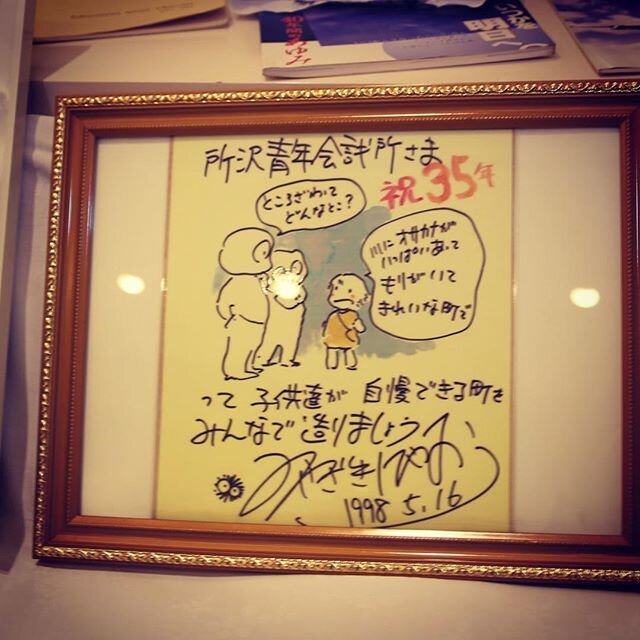 明日へ
所沢青年会議所さま
祝35年
ところざわって
どんなとこ?
川にオサカナが
いっぱいあって
もりがいて
きれいな町で
って 子供達が 自慢できる町を
みんなで造りましょう
みやざきはやお
1998 5.16